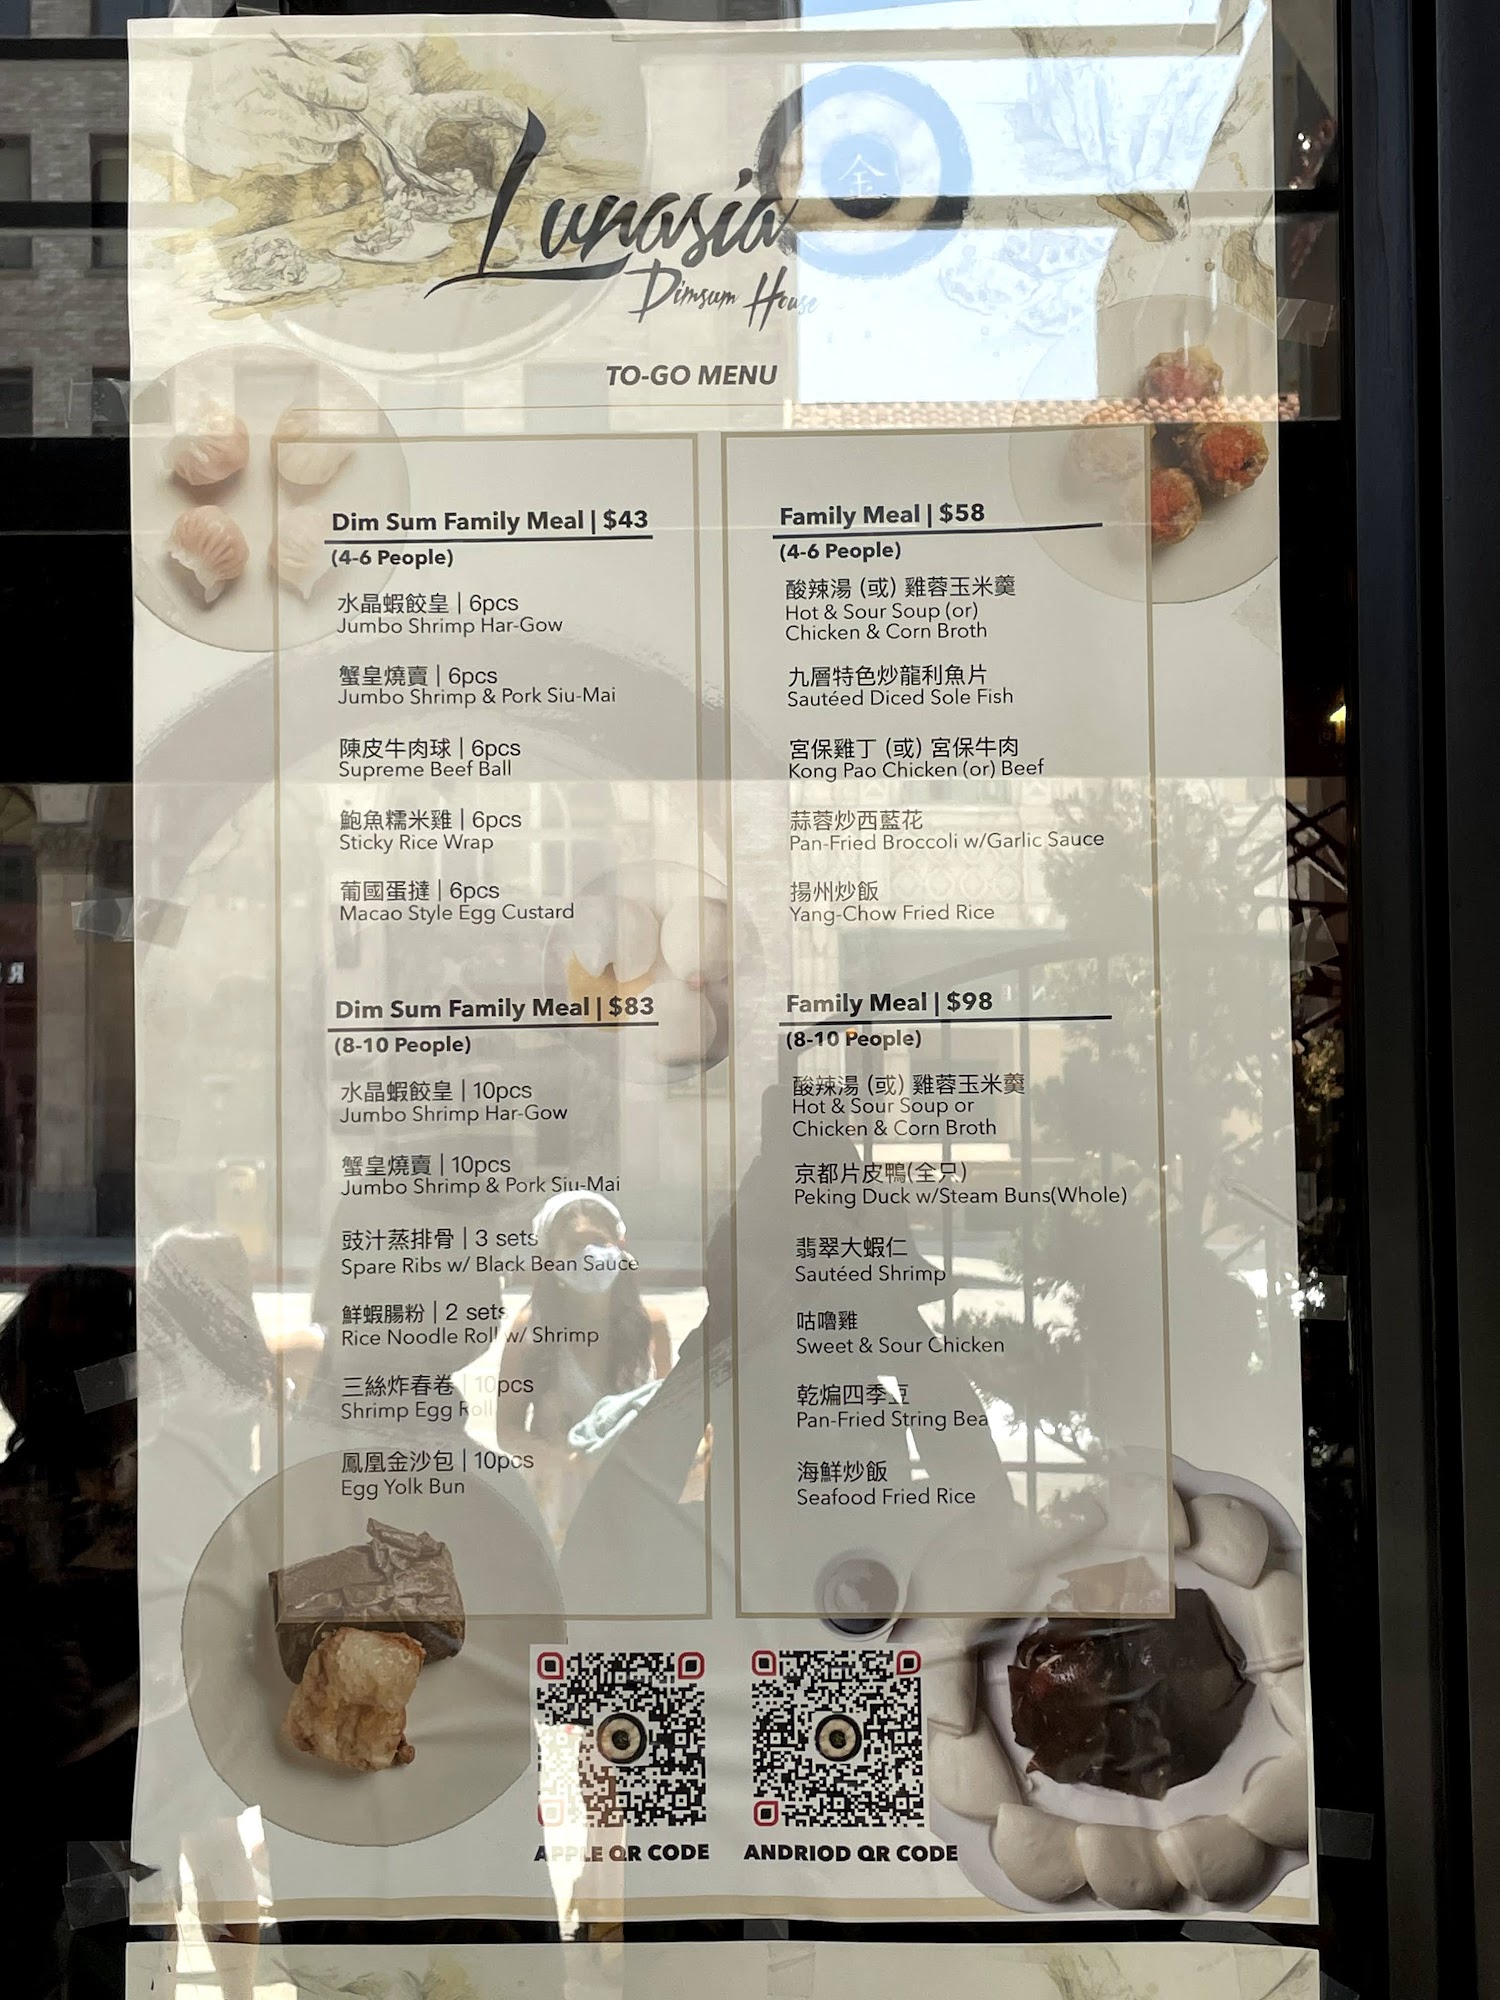 Lunasia
金
Dimsum House
TO-GO MENU
Dim Sum Family Meal | $43
(4-6 People)
水晶蝦餃皇 | 6pcs
Jumbo Shrimp Har-Gow
蟹皇燒賣 | 6pcs
Jumbo Shrimp & Pork Siu-Mai
陳皮牛肉球 | 6pcs
Supreme Beef Ball
鮑魚糯米雞 | 6pcs
Sticky Rice Wrap
葡國蛋撻 | 6pcs
Macao Style Egg Custard
Dim Sum Family Meal | $83
(8-10 People)
水晶蝦餃皇 | 10pcs
Jumbo Shrimp Har-Gow
蟹皇燒賣 | 10pcs
Jumbo Shrimp & Pork Siu-Mai
豉汁蒸排骨 | 3 sets
Spare Ribs w/ Black Bean Sauce
鮮蝦腸粉 | 2 sets
Rice Noodle Roll w/ Shrimp
三絲炸春卷 | 10pcs
Shrimp Egg Roll
鳳凰金沙包 | 10pcs
Egg Yolk Bun
Family Meal | $58
(4-6 People)
酸辣湯 (或) 雞蓉玉米羹
Hot & Sour Soup (or)
Chicken & Corn Broth
九層特色炒龍利魚片
Sautéed Diced Sole Fish
宮保雞丁 (或) 宮保牛肉
Kong Pao Chicken (or) Beef
蒜蓉炒西藍花
Pan-Fried Broccoli w/Garlic Sauce
揚州炒飯
Yang-Chow Fried Rice
Family Meal | $98
(8-10 People)
酸辣湯 (或) 雞蓉玉米羹
Hot & Sour Soup or
Chicken & Corn Broth
京都片皮鴨(全只)
Peking Duck w/Steam Buns(Whole)
翡翠大蝦仁
Sautéed Shrimp
咕嚕雞
Sweet & Sour Chicken
乾煸四季豆
Pan-Fried String Bea
海鮮炒飯
Seafood Fried Rice
APPLE QR CODE
ANDRIOD QR CODE